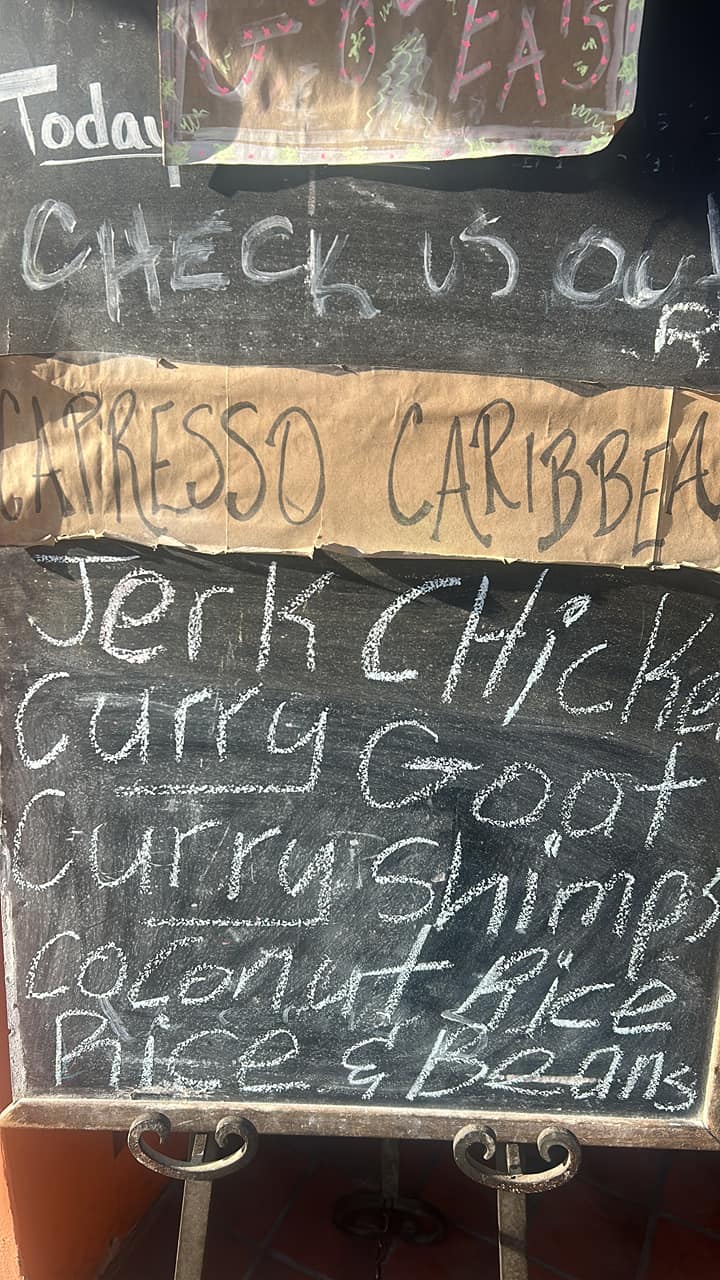 Today
CHECK US OUt
R
CAPRESSO CARIBBEA
Jerk CHicke
Curry Goat
Curry Shimps
Coconut Rice
Rice & Beans